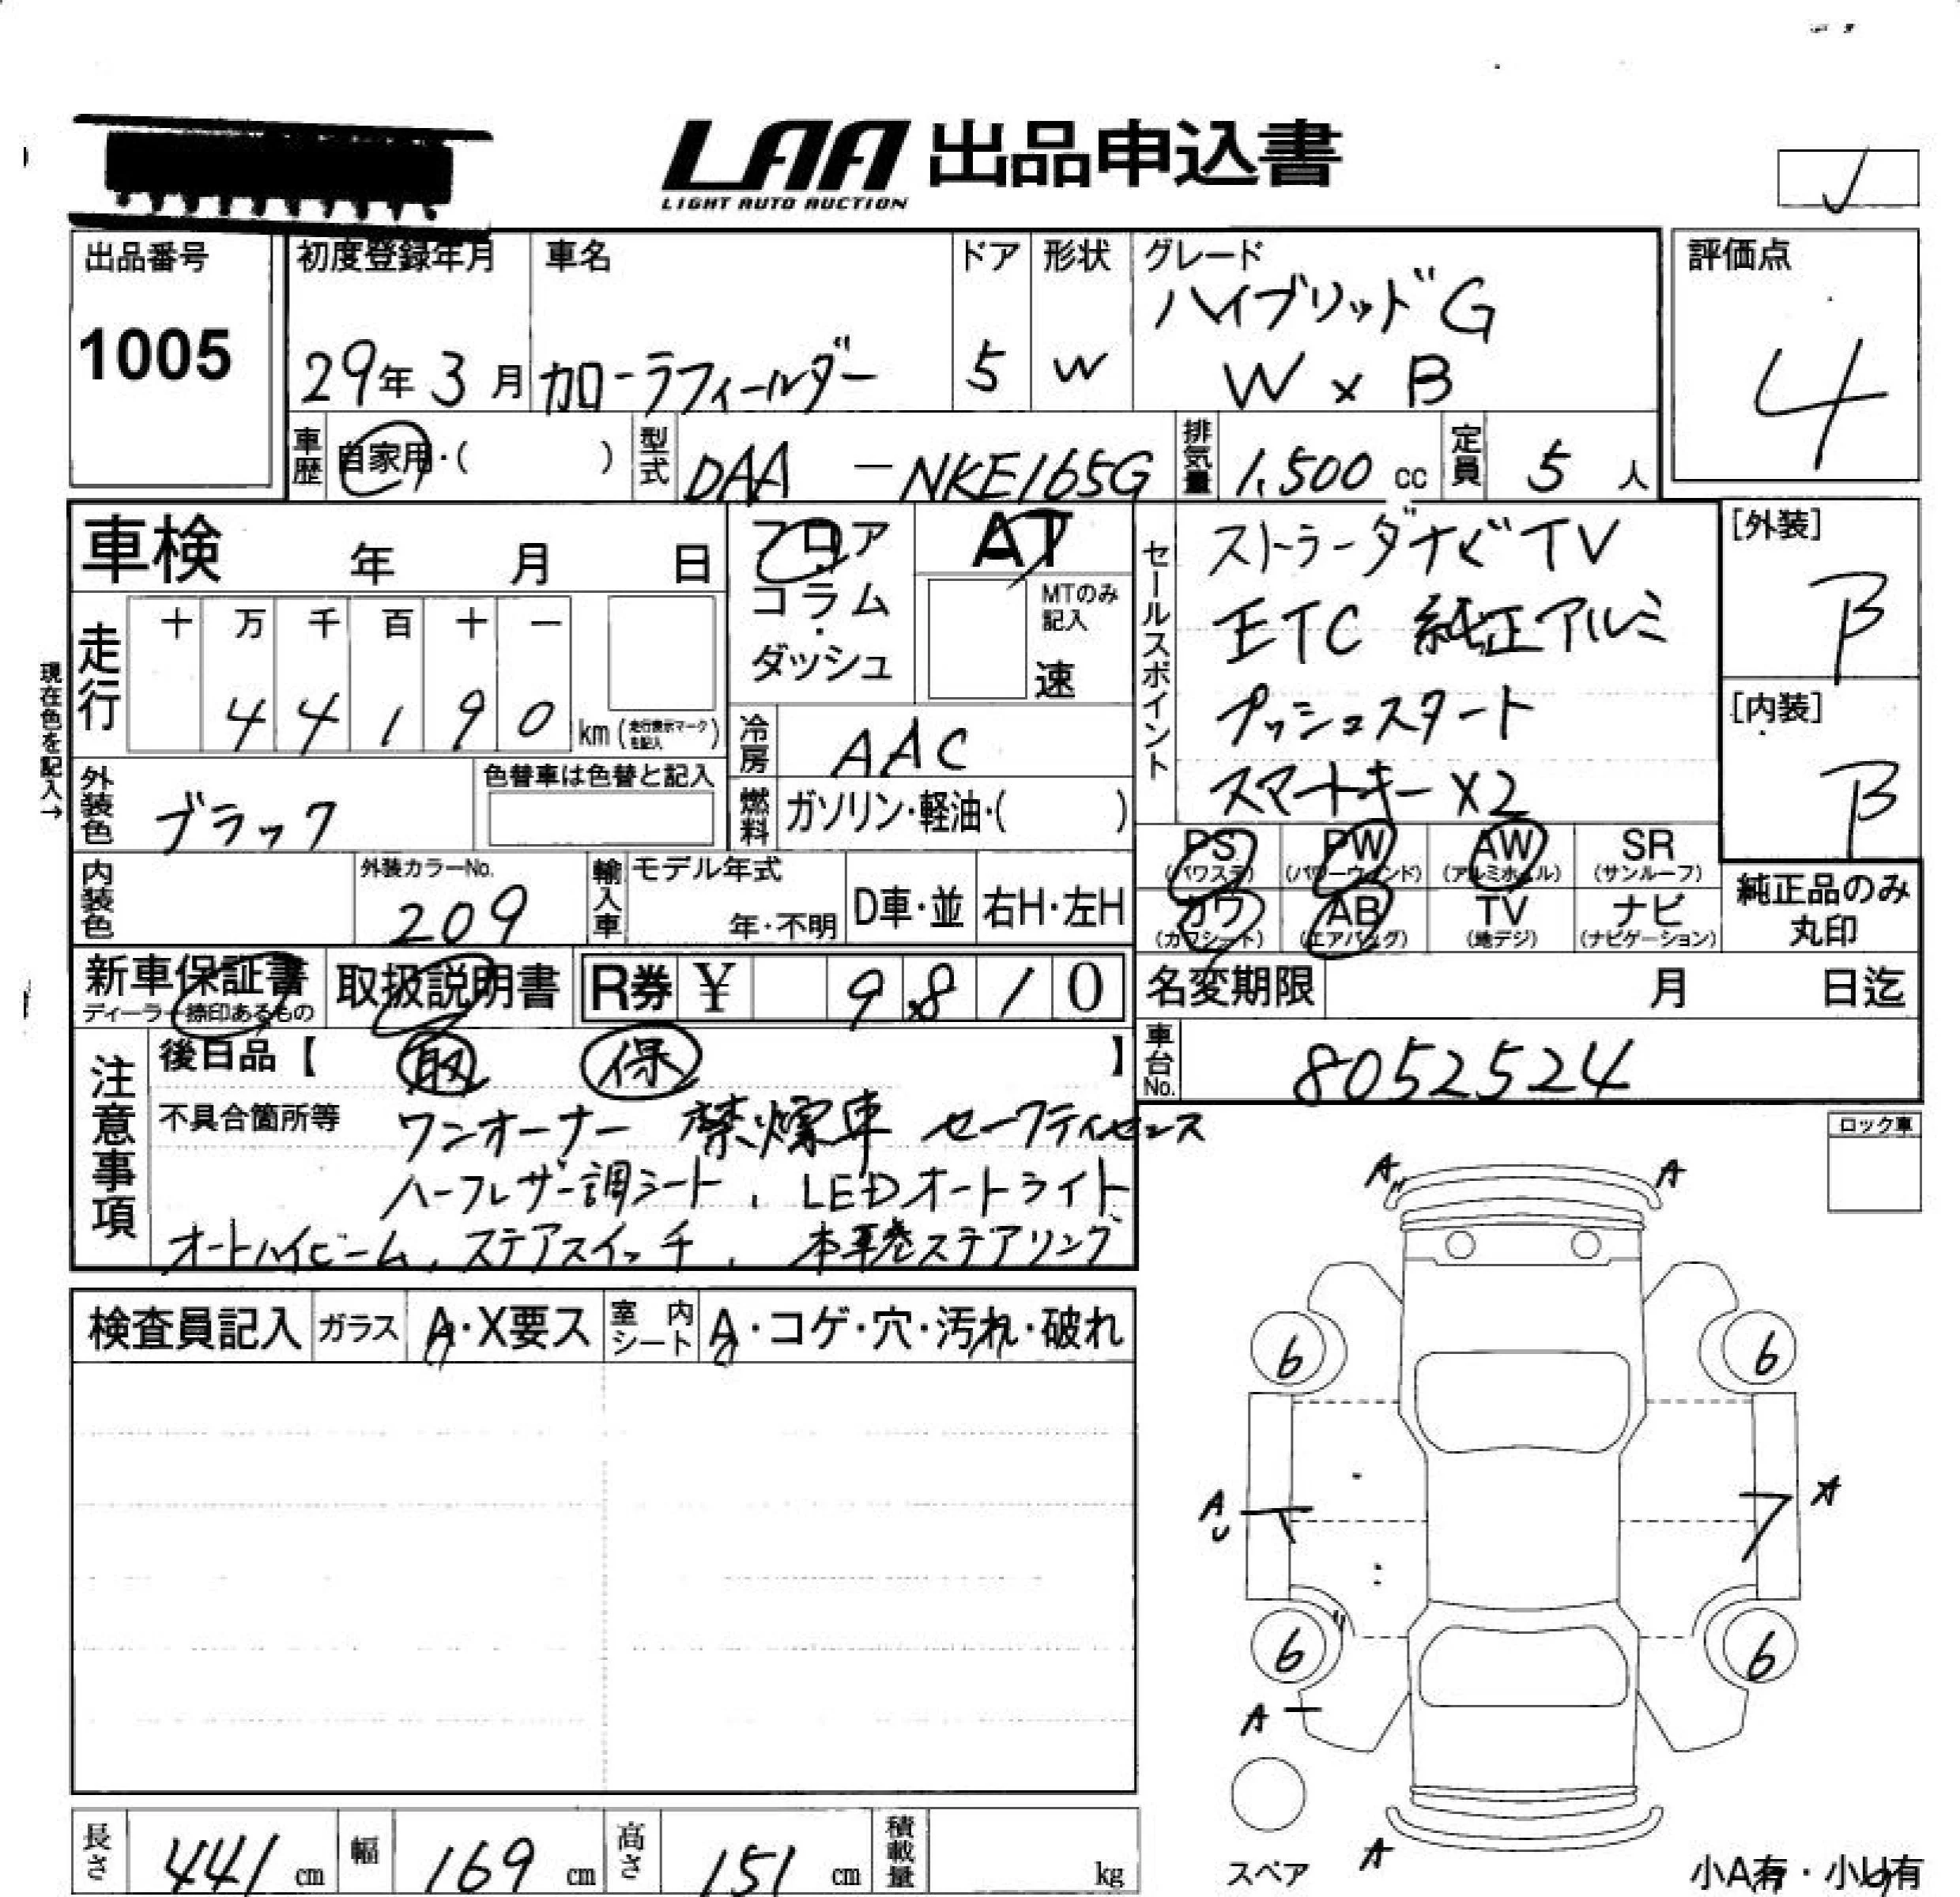 LAA 出品申込書
LIGHT AUTO AUCTION
出品番号
1005
初度登録年月
29年 3月
車名
カローラフィールダー
ドア
5
形状
W
グレード
ハイブリッドG
W×B
評価点
4
車歴 自家用・( )
型式 DAA-NKE165G
排気量 1,500 cc
定員 5 人
車検 年 月 日
フロア
コラム
・
ダッシュ
AT
MTのみ
記入
速
現在色を記入→
走行
十 万 千 百 十 一
4 4 1 9 0 km(走行表示マークを記入)
冷房 AAC
燃料 ガソリン・軽油・( )
外装色 ブラック
色替車は色替と記入
内装色
外装カラーNo.
209
輸入車
モデル年式
年・不明
D車・並
右H・左H
セールスポイント
ストラーダナビTV
ETC 純正アルミ
プッシュスタート
スマートキーX2
[外装]
B
[内装]
B
PS
(パワステ)
PW
(パワーウィンド)
AW
(アルミホイル)
SR
(サンルーフ)
カワ
(カワシート)
AB
(エアバッグ)
TV
(地デジ)
ナビ
(ナビゲーション)
純正品のみ
丸印
新車保証書
ディーラー捺印あるもの
取扱説明書
R券 ¥ 9,810
名変期限 月 日迄
車台No. 8052524
注意事項
後日品【 取 保 】
不具合箇所等
ワンオーナー 禁煙車 セーフティセンス
ハーフレザー調シート、LEDオートライト
オートハイビーム、ステアスイッチ、本革巻ステアリング
検査員記入
ガラス
A・X要ス
室内シート
A・コゲ・穴・汚れ・破れ
ロック車
A A
6 6
A U A
6 6
A
A
スペア
小A有・小U有
長さ 441 cm
幅 169 cm
高さ 151 cm
積載量 kg